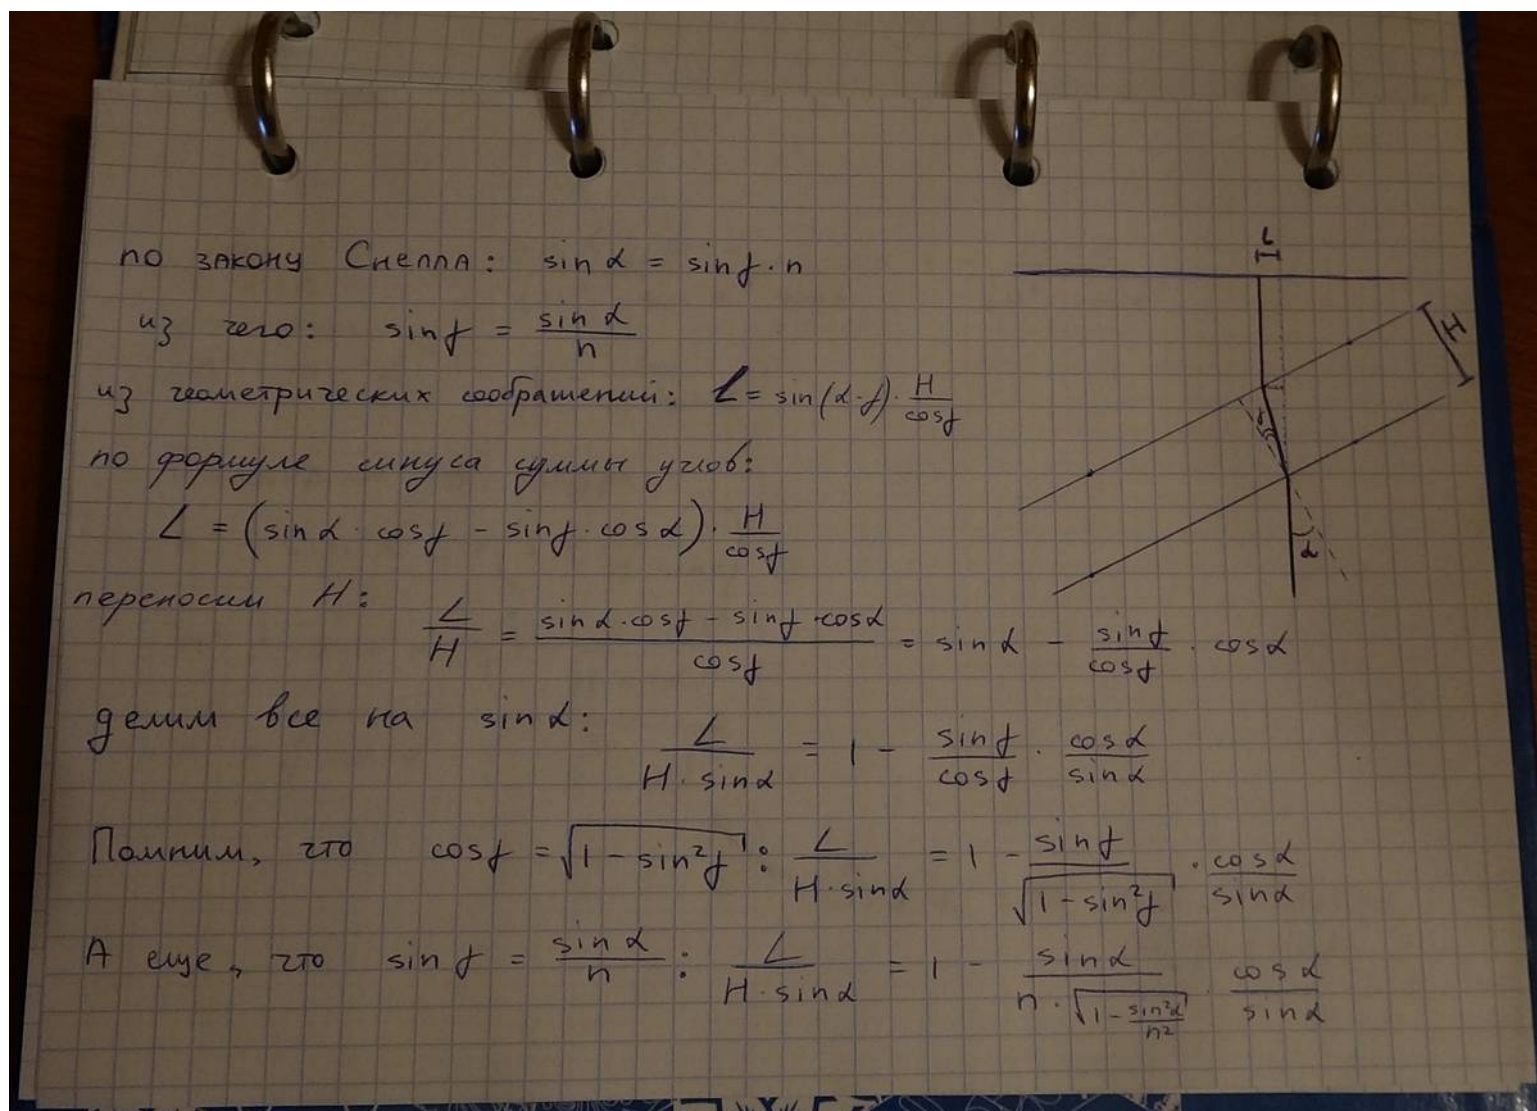 по закону Снелла: sin α = sin γ · n
из чего: sin γ = sin α / n
из геометрических соображений: L = sin(α - γ) · H / cos γ
по формуле синуса суммы углов:
L = (sin α · cos γ - sin γ · cos α) · H / cos γ
переносим H: L / H = (sin α · cos γ - sin γ · cos α) / cos γ = sin α - sin γ / cos γ · cos α
делим все на sin α: L / (H · sin α) = 1 - sin γ / cos γ · cos α / sin α
Помним, что cos γ = √(1 - sin²γ) : L / (H · sin α) = 1 - sin γ / √(1 - sin²γ) · cos α / sin α
А еще, что sin γ = sin α / n : L / (H · sin α) = 1 - sin α / (n · √(1 - sin²α / n²)) · cos α / sin α
L
H
γ
α